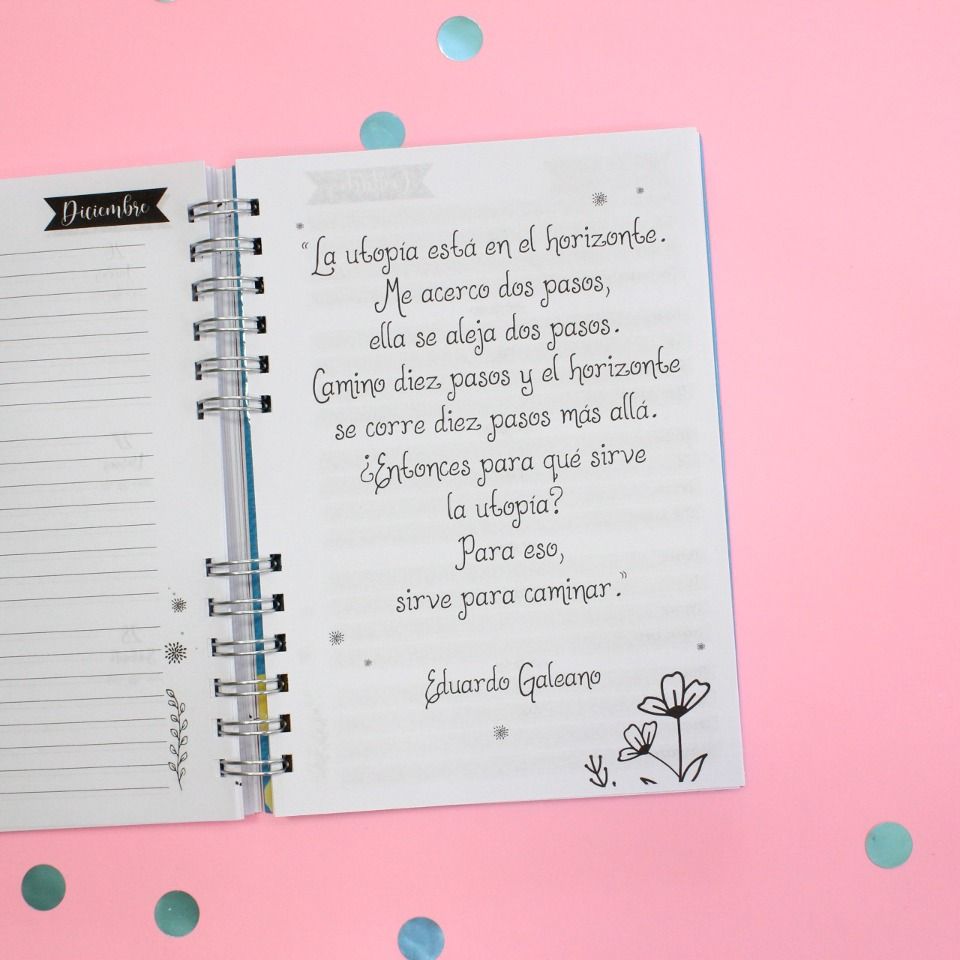 Diciembre
“La utopía está en el horizonte.
Me acerco dos pasos,
ella se aleja dos pasos.
Camino diez pasos y el horizonte
se corre diez pasos más allá.
¿Entonces para qué sirve
la utopía?
Para eso,
sirve para caminar.”
Eduardo Galeano